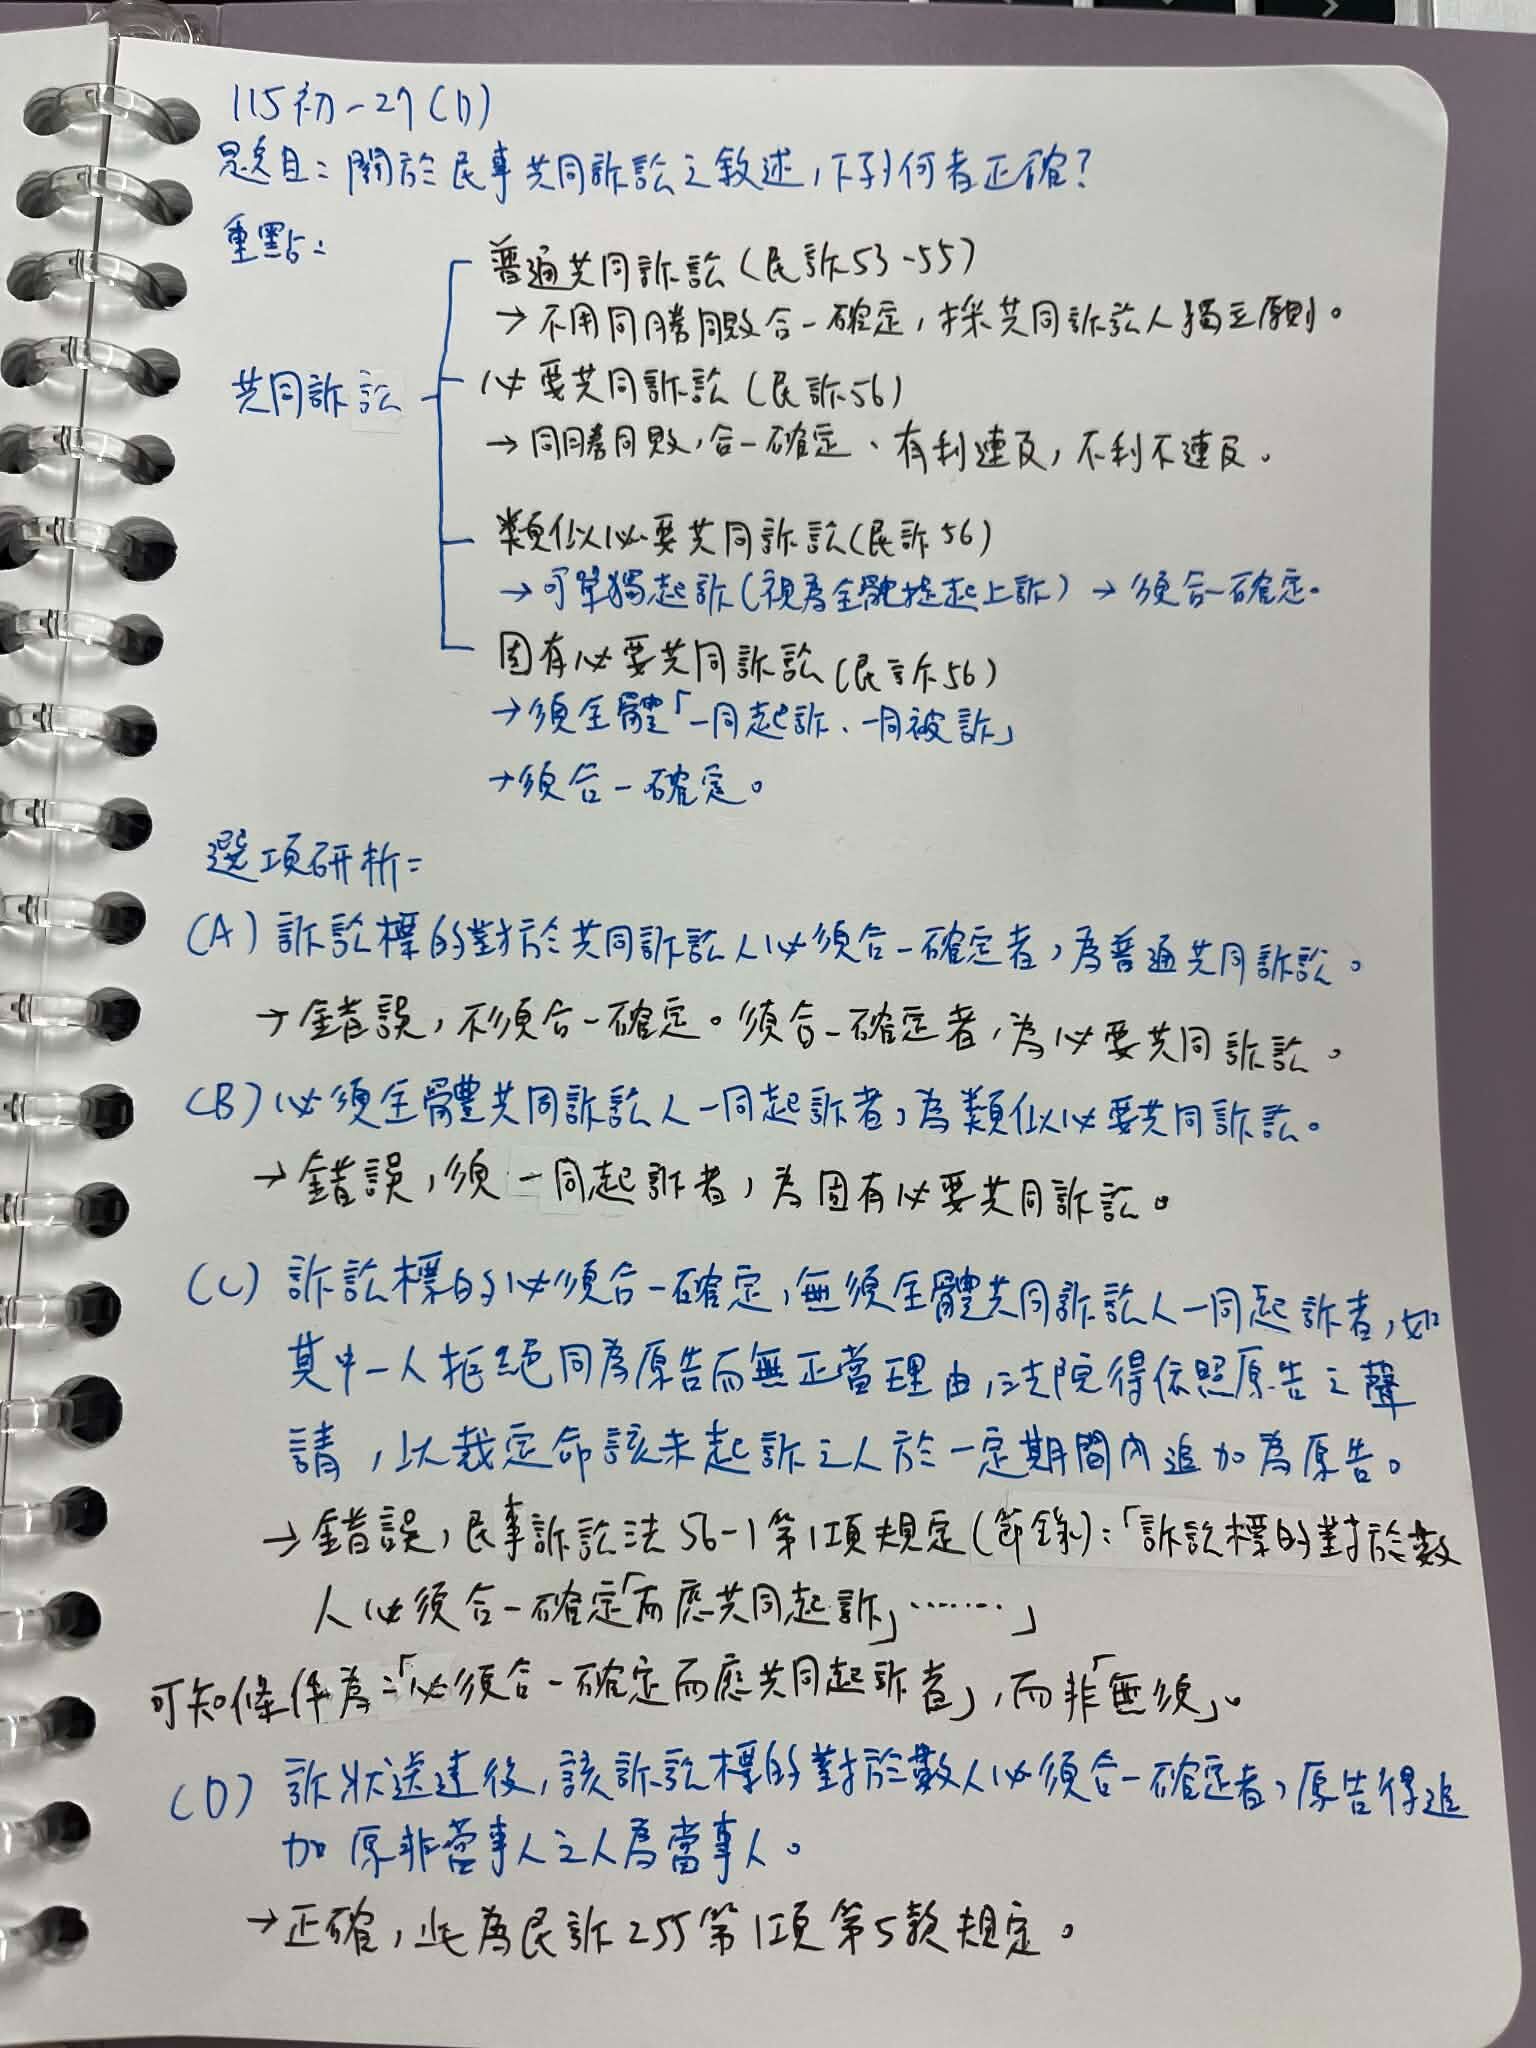 115初-27(D)
題目：關於民事共同訴訟之敘述，下列何者正確？
重點：
普通共同訴訟(民訴53-55)
→不用同勝同敗合一確定，採共同訴訟人獨立原則。
共同訴訟
必要共同訴訟(民訴56)
→同勝同敗，合一確定、有利連及，不利不連及。
類似必要共同訴訟(民訴56)
→可單獨起訴(視為全體提起上訴)→須合一確定。
固有必要共同訴訟(民訴56)
→須全體「一同起訴、一同被訴」
→須合一確定。
選項研析：
(A)訴訟標的對於共同訴訟人必須合一確定者，為普通共同訴訟。
→錯誤，不須合一確定。須合一確定者，為必要共同訴訟。
(B)必須全體共同訴訟人一同起訴者，為類似必要共同訴訟。
→錯誤，須一同起訴者，為固有必要共同訴訟。
(C)訴訟標的必須合一確定，無須全體共同訴訟人一同起訴者，如
其中一人拒絕同為原告而無正當理由，法院得依照原告之聲
請，以裁定命該未起訴之人於一定期間內追加為原告。
→錯誤，民事訴訟法56-1第1項規定(節錄)：「訴訟標的對於數
人必須合一確定「而應共同起訴」……」
可知條件為：「必須合一確定而應共同起訴者」，而非「無須」。
(D)訴狀送達後，該訴訟標的對於數人必須合一確定者，原告得追
加原非當事人之人為當事人。
→正確，此為民訴255第1項第5款規定。